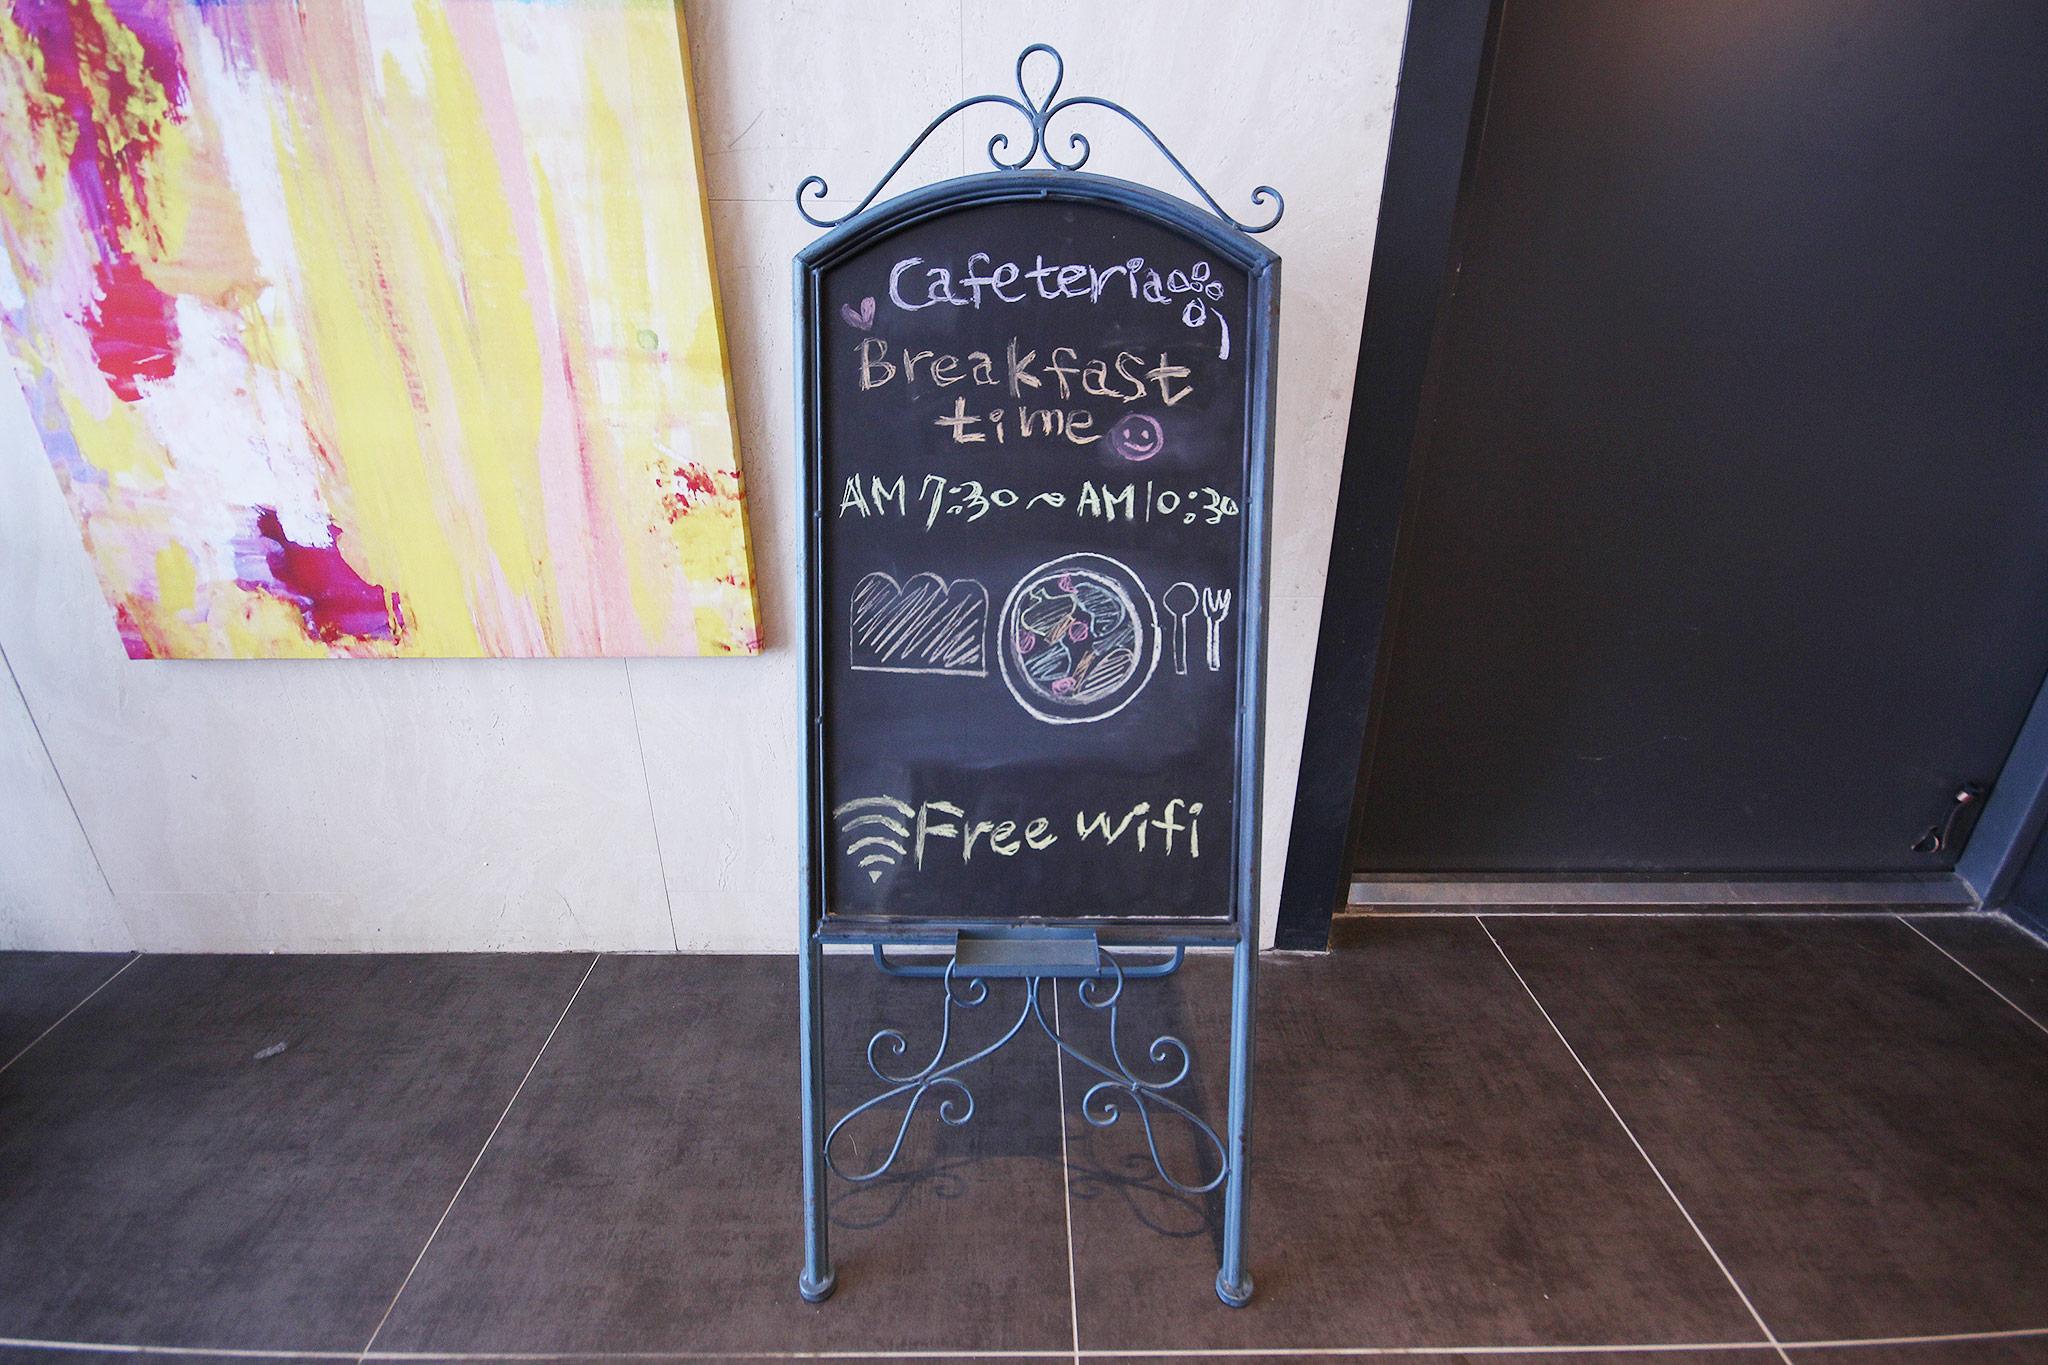 Cafeteria
Breakfast
time
AM 7:30 ~ AM 10:30
Free wifi